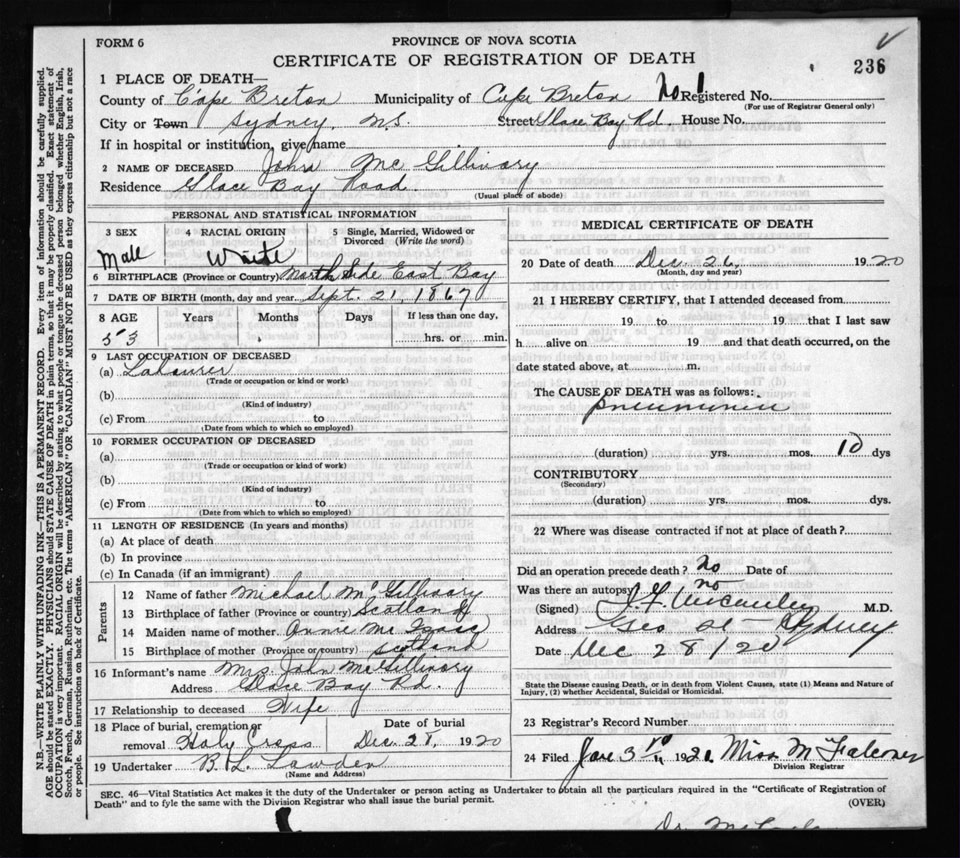 FORM 6
PROVINCE OF NOVA SCOTIA
CERTIFICATE OF REGISTRATION OF DEATH
236
1 PLACE OF DEATH—
County of Cape Breton Municipality of Cape Breton No 1 Registered No.
(For use of Registrar General only)
City or Town Sydney, N.S. Street Glace Bay Rd. House No.
If in hospital or institution, give name
2 NAME OF DECEASED John McGillivary
Residence Glace Bay Road.
(Usual place of abode)
PERSONAL AND STATISTICAL INFORMATION
3 SEX
4 RACIAL ORIGIN
5 Single, Married, Widowed or Divorced (Write the word)
Male White
6 BIRTHPLACE (Province or Country) North Side East Bay
7 DATE OF BIRTH (month, day and year) Sept. 21, 1867
8 AGE Years Months Days If less than one day,
53 hrs. or min.
9 LAST OCCUPATION OF DECEASED
(a) Labourer
(Trade or occupation or kind of work)
(b)
(Kind of industry)
(c) From to
(Date from which to which so employed)
10 FORMER OCCUPATION OF DECEASED
(a)
(Trade or occupation or kind of work)
(b)
(Kind of industry)
(c) From to
(Date from which to which so employed)
11 LENGTH OF RESIDENCE (In years and months)
(a) At place of death
(b) In province
(c) In Canada (if an immigrant)
Parents
12 Name of father Michael McGillivary
13 Birthplace of father (Province or country) Scotland
14 Maiden name of mother Annie McIsaac
15 Birthplace of mother (Province or country) Scotland
16 Informant's name Mrs. John McGillivary
Address Glace Bay Rd.
17 Relationship to deceased Wife
18 Place of burial, cremation or Date of burial
removal Holy Cross Dec. 28, 1920
19 Undertaker B. L. Lawden
(Name and Address)
MEDICAL CERTIFICATE OF DEATH
20 Date of death Dec. 26, 1920
(Month, day and year)
21 I HEREBY CERTIFY, that I attended deceased from
19 to 19 that I last saw
h alive on 19 and that death occurred, on the
date stated above, at m.
The CAUSE OF DEATH was as follows:
Pneumonia
(duration) yrs. mos. 10 dys
CONTRIBUTORY
(Secondary)
(duration) yrs. mos. dys.
22 Where was disease contracted if not at place of death?
Did an operation precede death? No Date of
Was there an autopsy no
(Signed) M.D.
Address Geo St - Sydney
Date Dec 28/20
State the Disease causing Death, or in death from Violent Causes, state (1) Means and Nature of
Injury, (2) whether Accidental, Suicidal or Homicidal.
23 Registrar's Record Number
24 Filed Jan 3rd 1921. Miss M Falconer
Division Registrar
SEC. 46—Vital Statistics Act makes it the duty of the Undertaker or person acting as Undertaker to obtain all the particulars required in the "Certificate of Registration of
Death" and to fyle the same with the Division Registrar who shall issue the burial permit.
(OVER)
N.B.—WRITE PLAINLY WITH UNFADING INK—THIS IS A PERMANENT RECORD. Every item of information should be carefully supplied.
AGE should be stated EXACTLY. PHYSICIANS should STATE CAUSE OF DEATH in plain terms, so that it may be properly classified. Exact statement of
OCCUPATION is very important. RACIAL ORIGIN will be described by stating to what people or tongue the deceased person belonged, whether English, Irish,
Scotch, French, German, Russian, Ruthenian, etc. The terms "AMERICAN" OR "CANADIAN" MUST NOT BE USED as they express citizenship but not a race
or people. See instructions on back of Certificate.